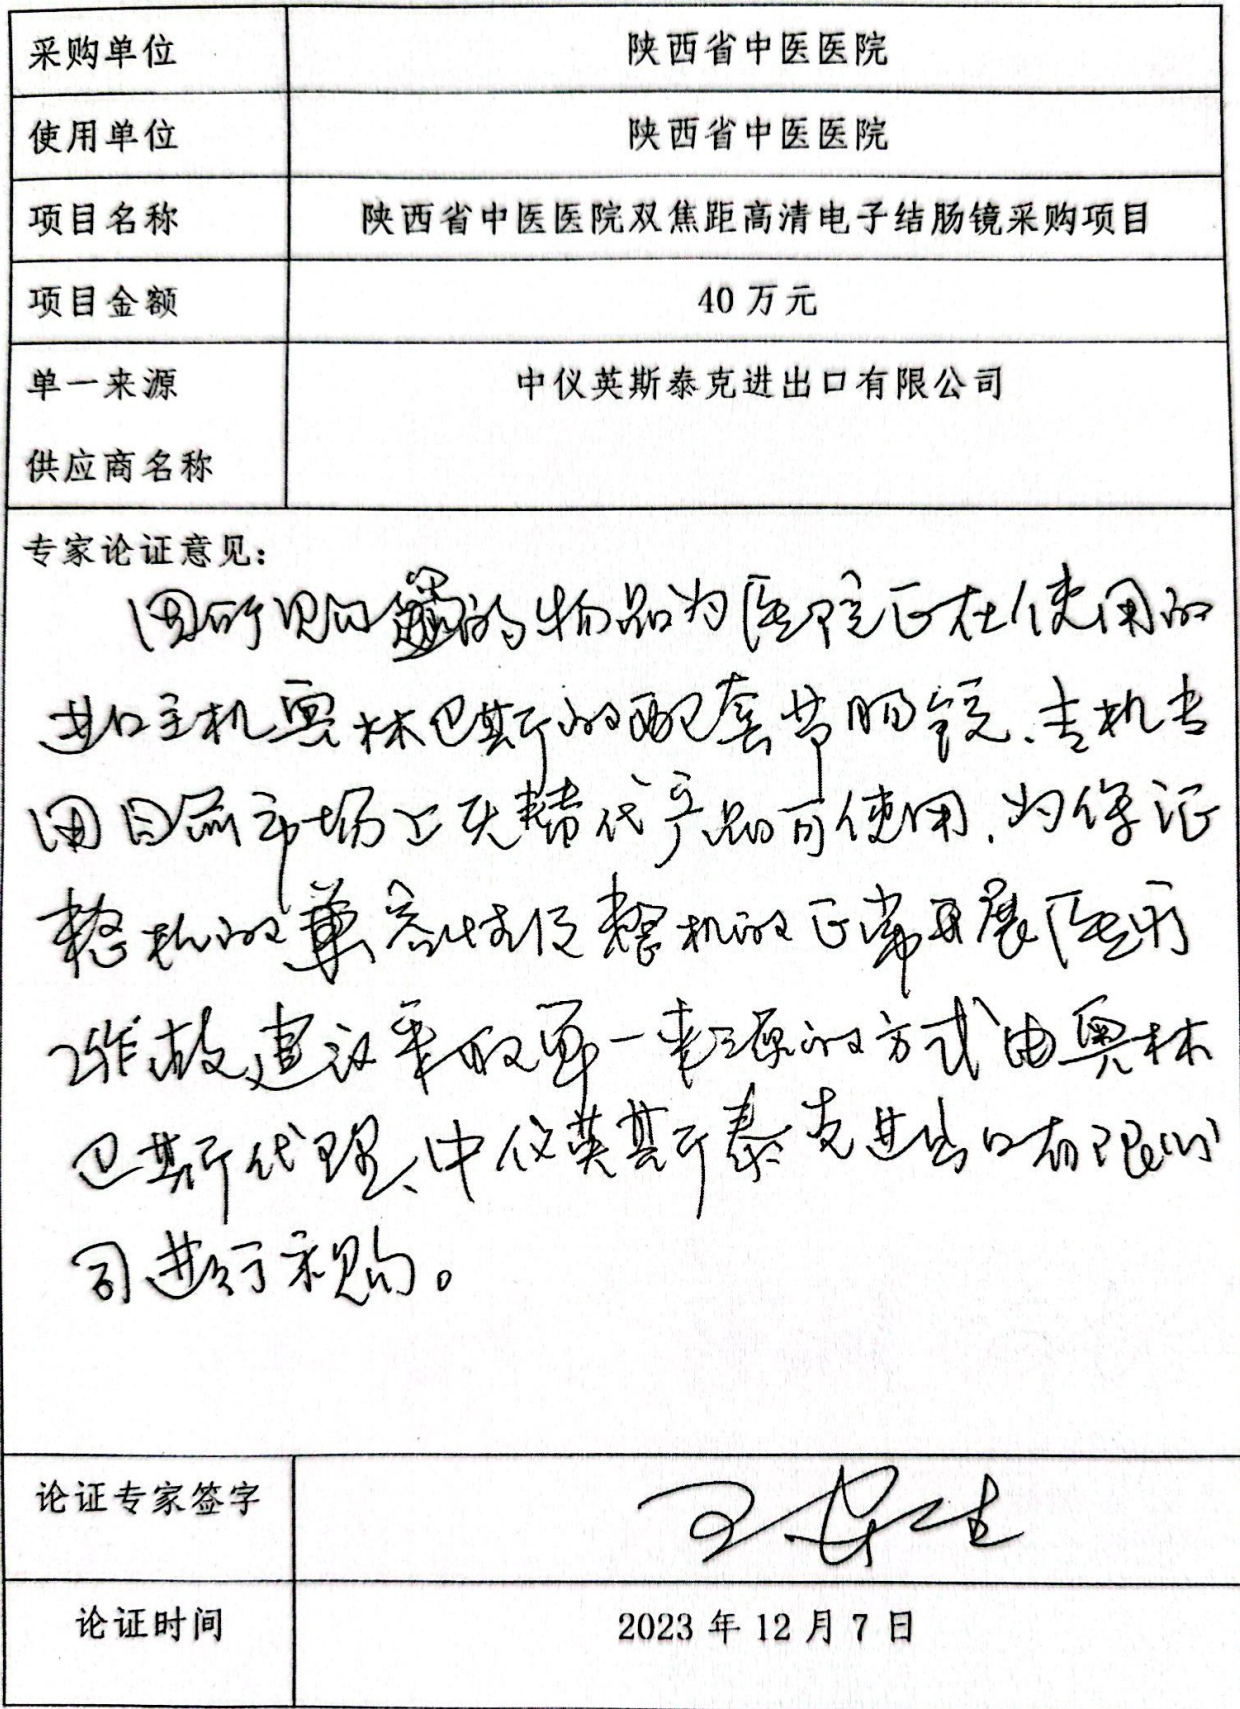 采购单位 陕西省中医医院
使用单位 陕西省中医医院
项目名称 陕西省中医医院双焦距高清电子结肠镜采购项目
项目金额 40万元
单一来源 中仪英斯泰克进出口有限公司
供应商名称
专家论证意见：
因所购的物品为医院正在使用的
进口主机奥林巴斯的配套节肠镜、专机专
用目前市场上无替代产品可使用，为保证
整机的兼容性及整机的正常开展医疗
工作故建议采取单一来源的方式由奥林
巴斯代理、中仪英斯泰克进出口有限公
司进行采购。
论证专家签字 王安生
论证时间 2023年12月7日